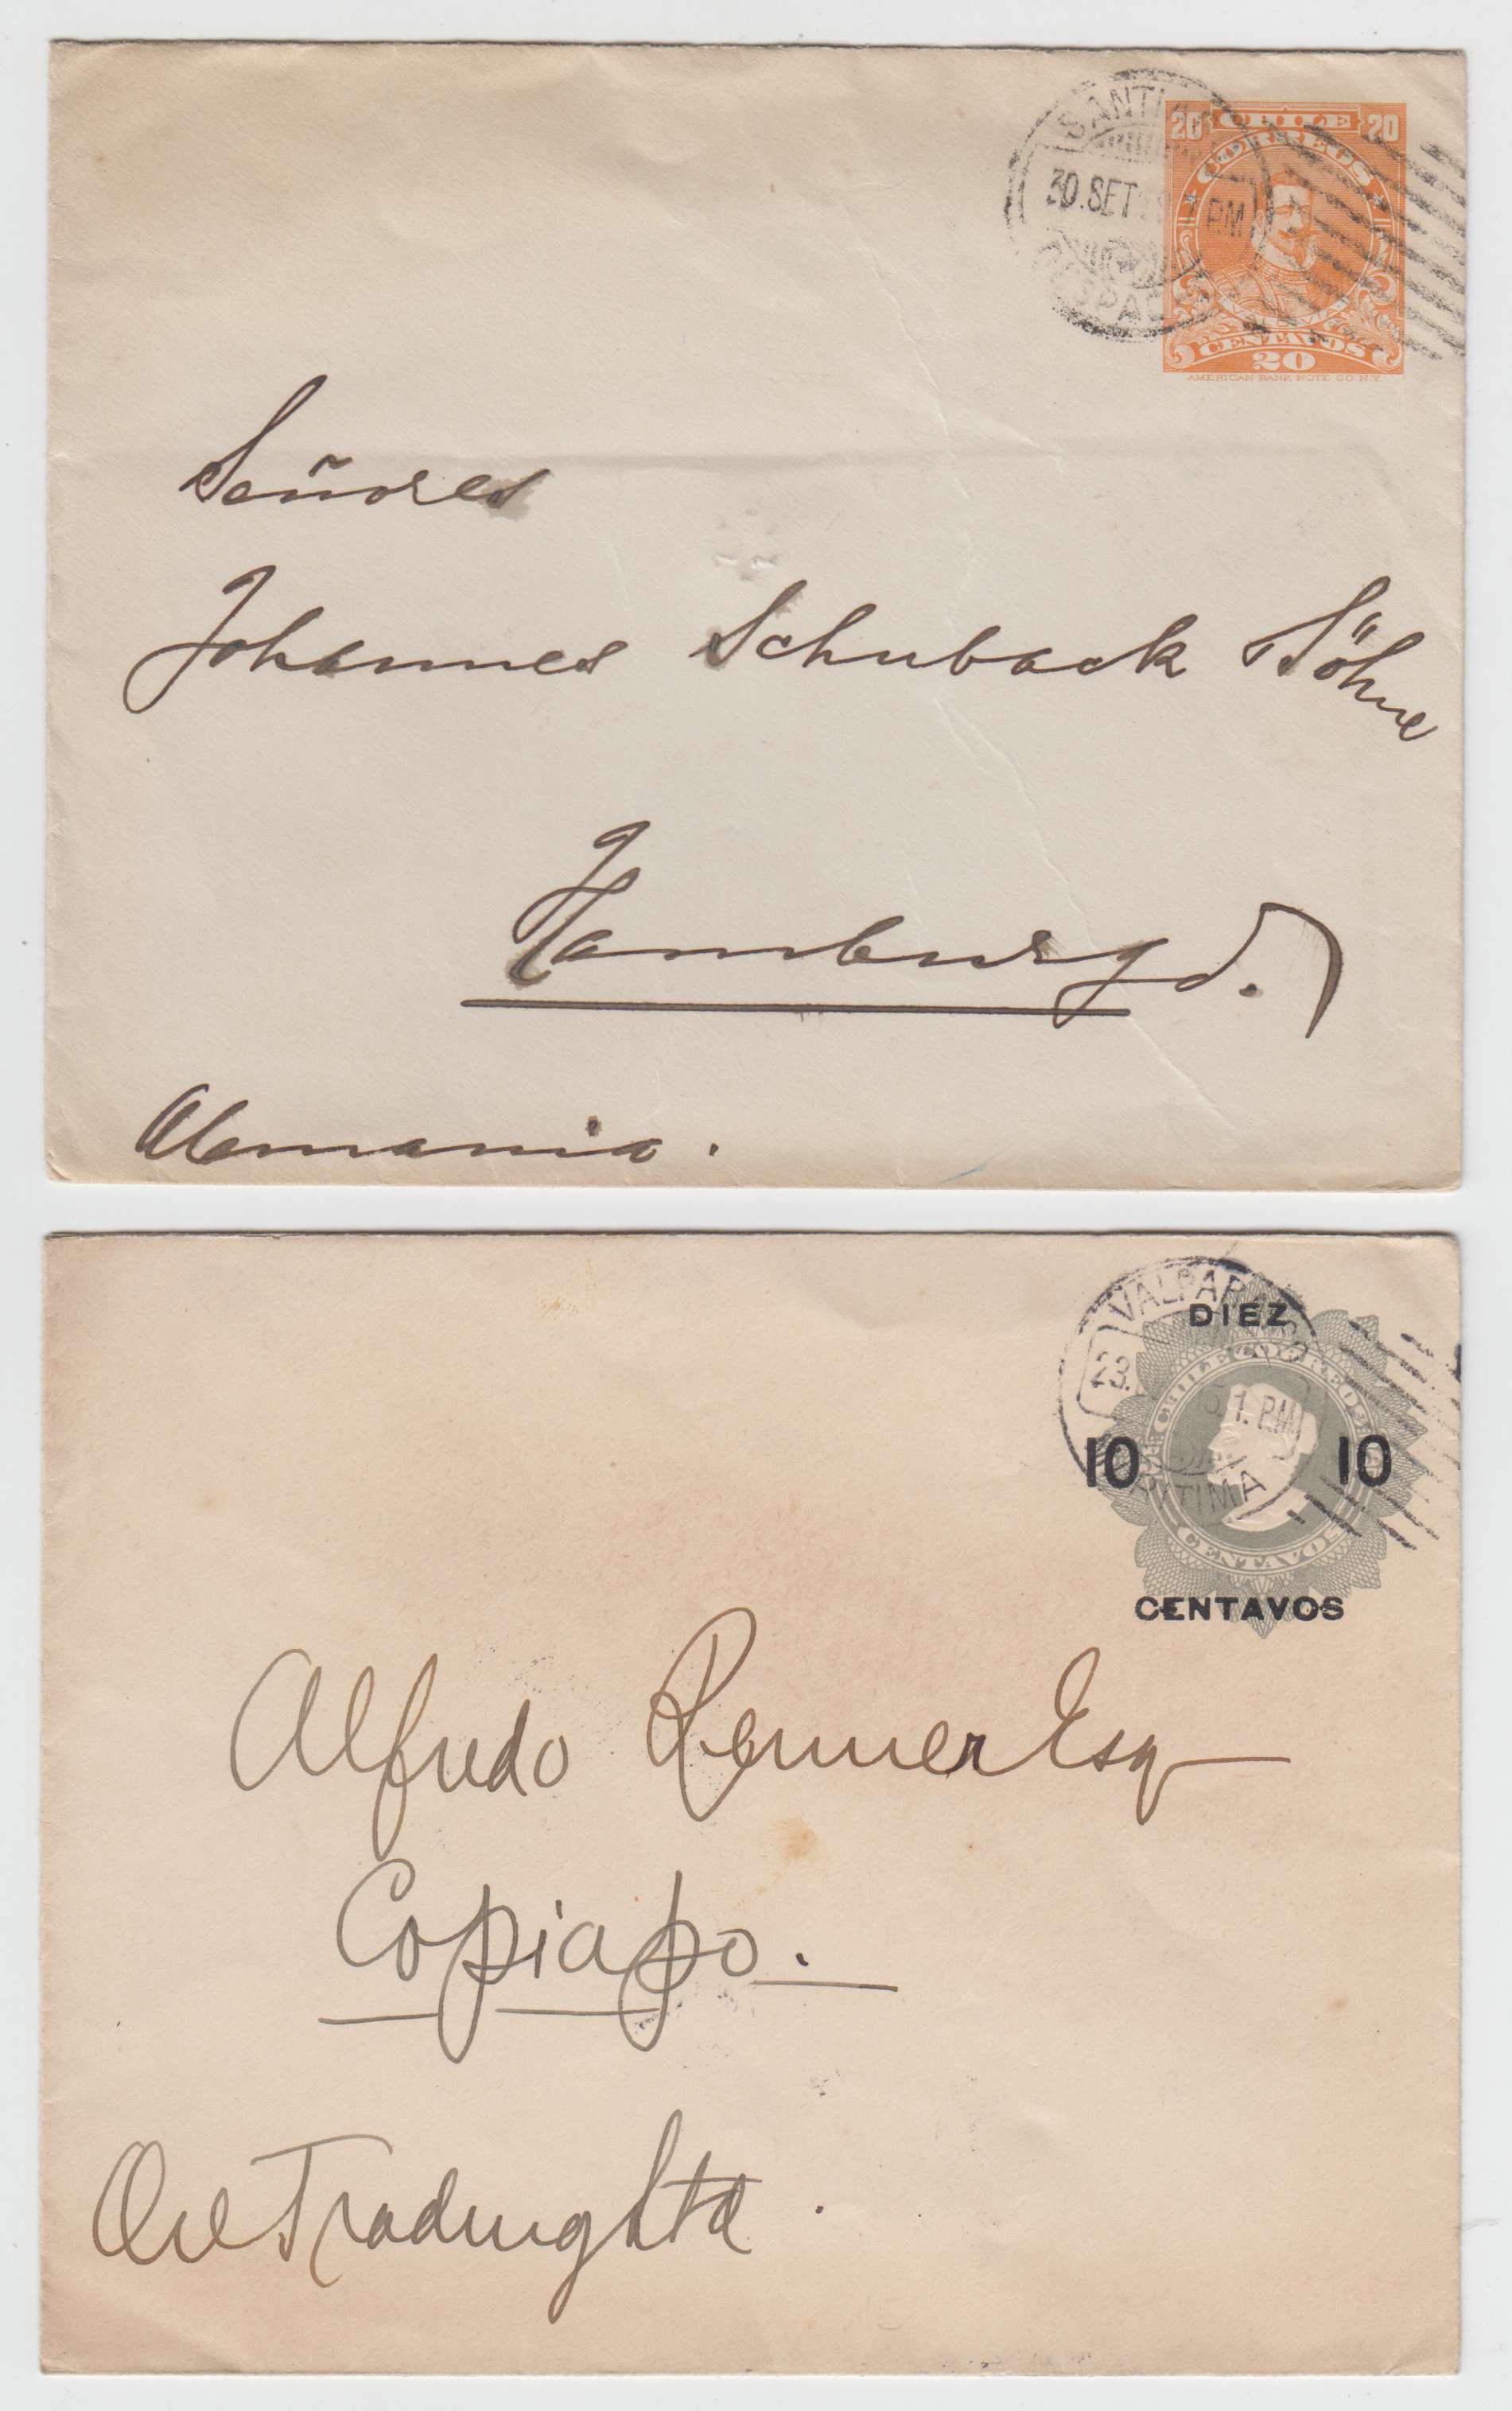 SANTI
30.SET PM
20 CHILE 20
CORREOS
CENTAVOS
20
AMERICAN BANK NOTE CO. N.Y.
Señores
Johannes Schuback Söhne
Hamburgo.
Alemania.
VALPARAISO
23. 1. PM
DIEZ
CHILE CORREOS
10 10
CENTAVOS
CENTAVOS
Alfredo Renner Esq
Copiapo.
Ore Trading Ltd.